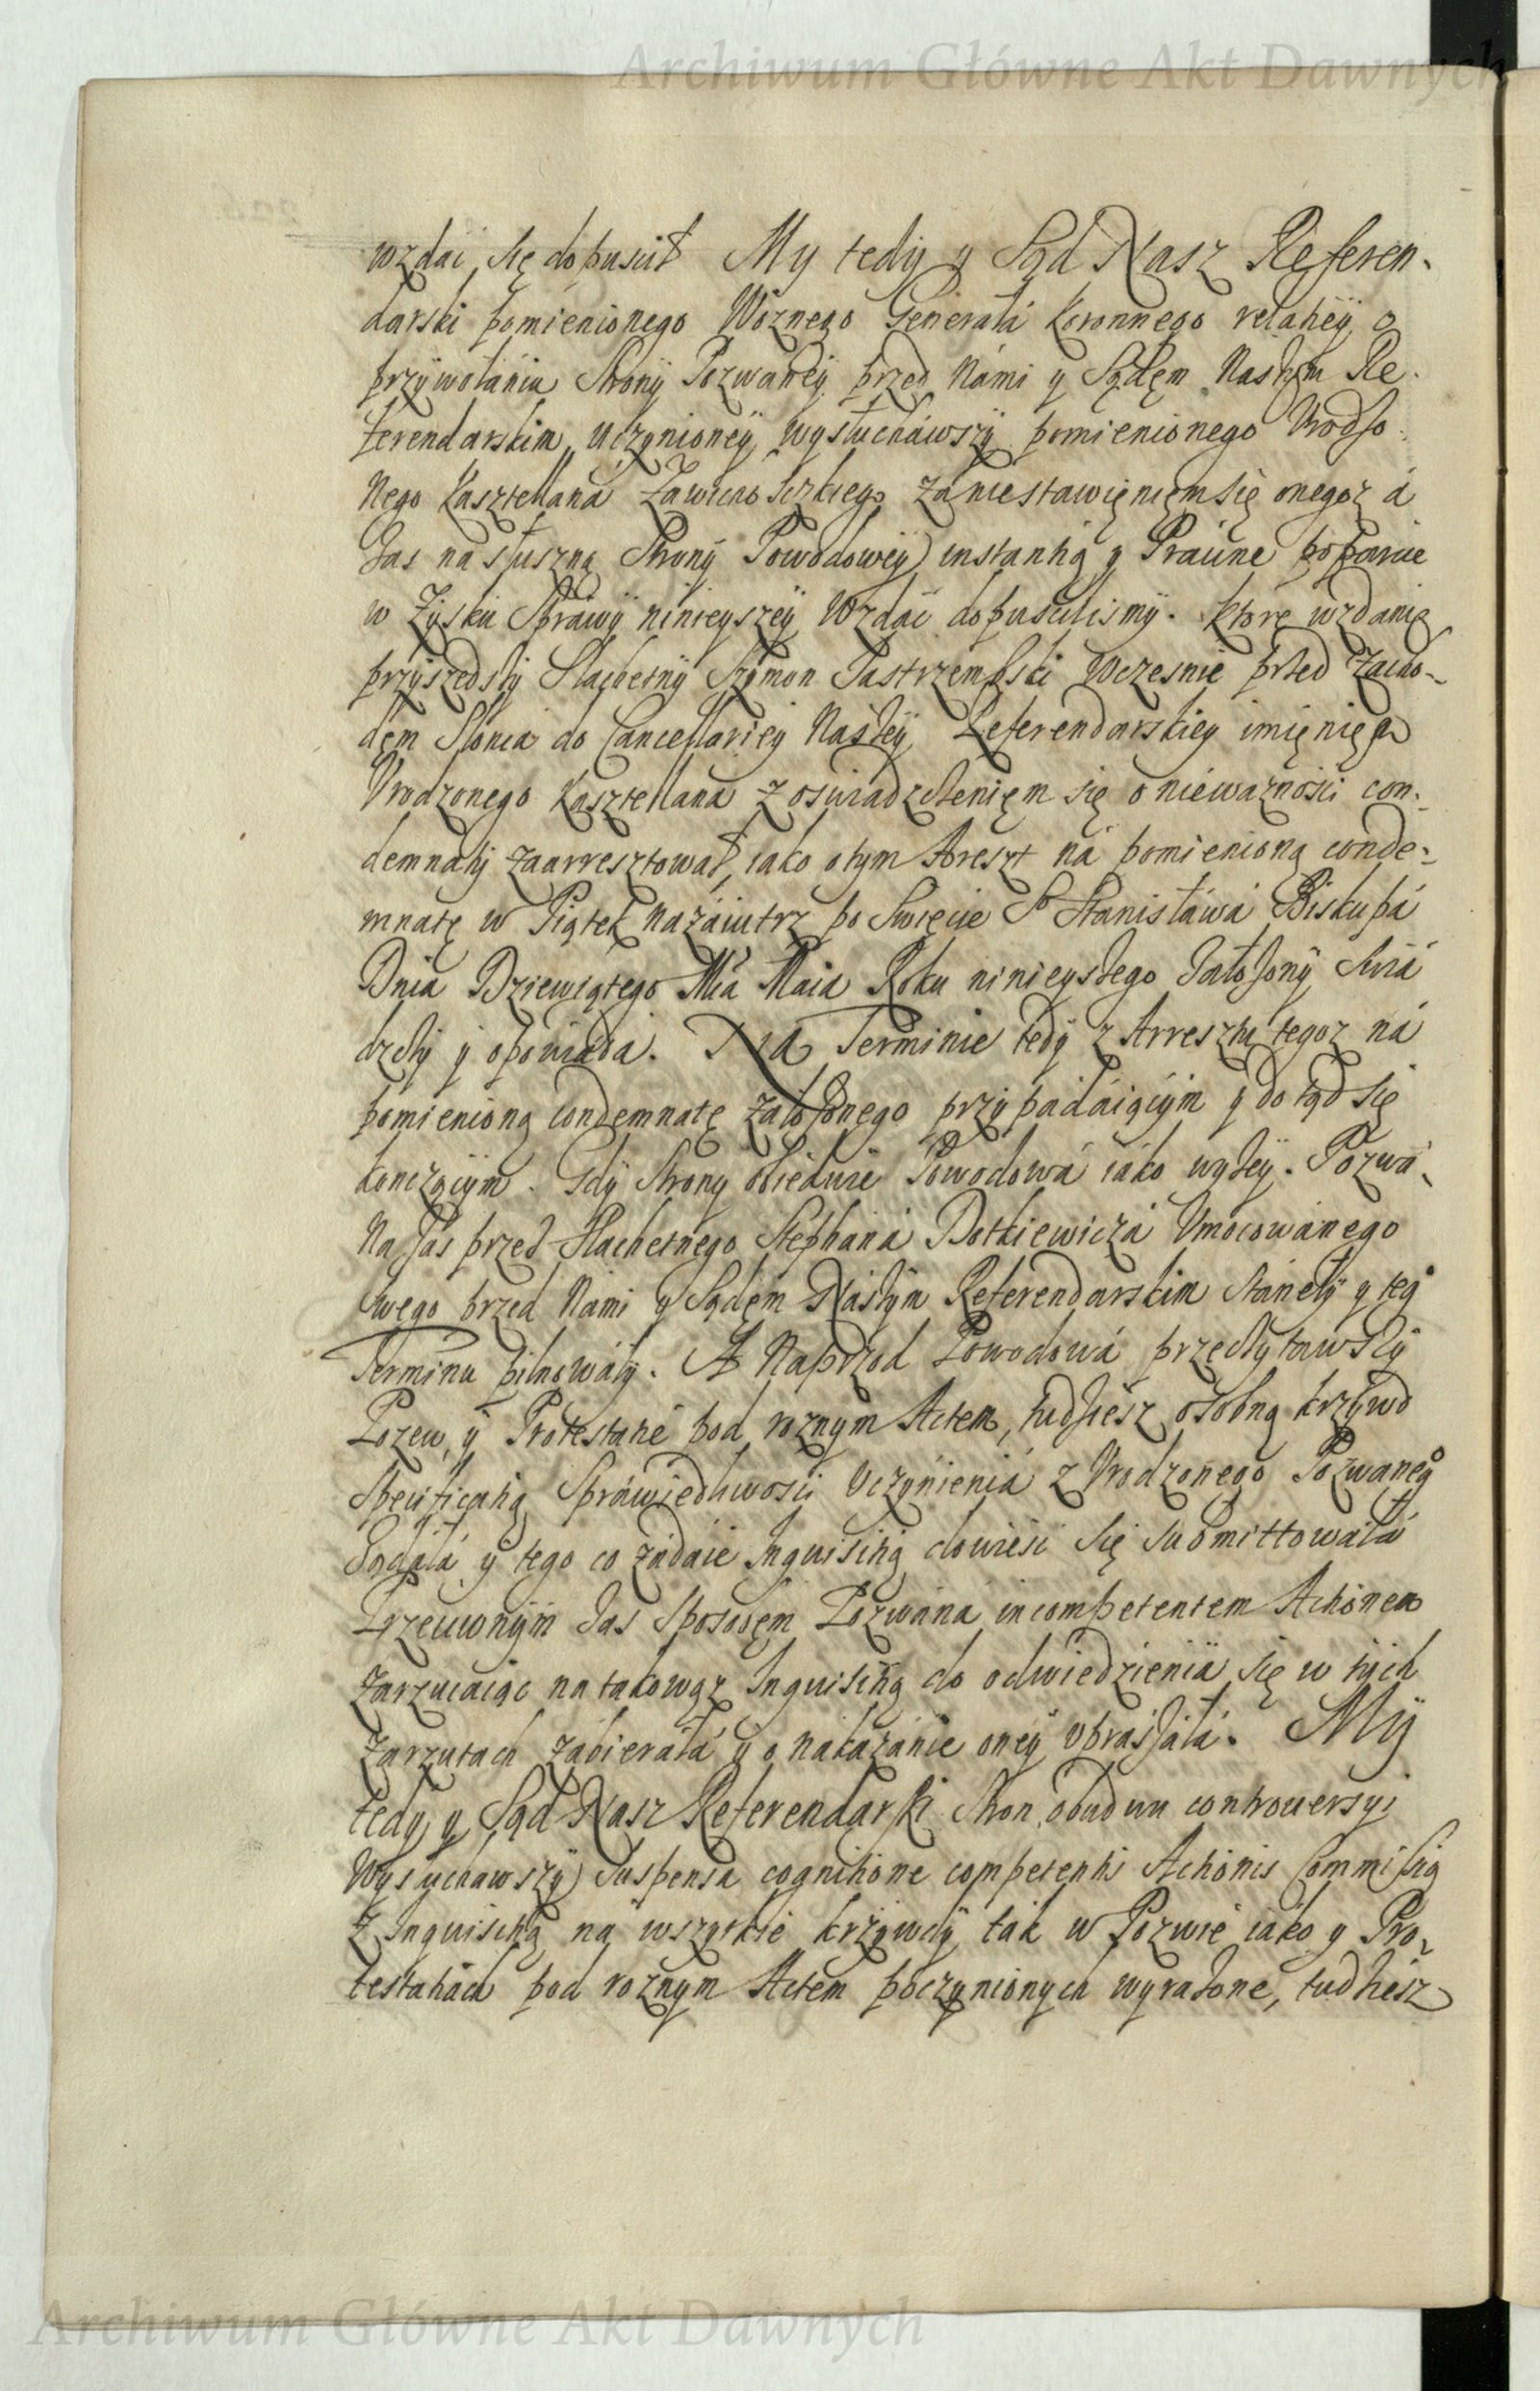 Archiwum Główne Akt Dawnych
wzdać się dopuścił My tedy y Sąd Nasz Referen-
darski pomienionego Woznego Generałá Koronnego relatiey o
przywołániu Strony Pozwáney przed Námi y Sądem Naszym Re-
ferendarskim uczynioney wysłuchawszy pomienionego Urodzo-
nego Kasztellana Zawichoszkiego za niestawięnięm się onegoz á
zas na słuszną Strony Powodowey instantią y Prawne poparcie
w Zysku Sprawy ninieyszey Wzdać dopuscilismy. Ktore wzdanie
przyszedszy Slachetny Szymon Jastrzembski Wczesnie przed Zacho-
dem Słonca do Cancellariey Naszey Referendarskiey imięnięm
Urodzonego Kasztellana z oswiadczęnięm się o niewaznosci con-
demnaty zaarresztował, iako o tym Areszt ná pomienioną conde-
mnatę w Piątek nazáiutrz po Swięcie S⁰ Stanisłáwá Biskupá
Dnia Dziewiątego Mca Maia Roku ninieyszego Załozony Swiá
dczy y opowiada. Na Terminie tedy z Arresztu tegoz ná
pomienioną condemnatę założonego przypadáiącym y do tąd się
konczącym. Gdy Strony obiedwie Powodowá iáko wyszey. Pozwá-
na zas przez Slachetnego Stephaná Dotkiewiczá Umocowánego
swego przed Námi y Sądem Naszym Referendarskim Stáneły y teg⁰
Terminu pilnowáły. A Naprzod Powodowá przeczytawszy
Pozew y Protestatie pod roznym Actem, tudziesz osobną krzywd
Specificatią Spráwiedliwosci Uczynieniá z Urodzonego Pozwaneg⁰
Ządałá y tego co zádaie Inquisitią dowiesc się submittowałá
Przeciwnym zas Sposobem Pozwána incompetentem Actionem
Zarzucáiąc na takowąz Inquisitią do odwiedzienia się w tych
Zarzutach zábierałá y o nakazánie oney upraszałá. My
tedy y Sąd Nasz Referendarski Stron obudwu controuersyi
Wysłuchawszy Suspensa cognitione competentis Actionis Commissią
z Inquisitią na wszytkie krzywdy ták w Pozwie iáko y Pro-
testatiách pod roznym Actem poczynionych wyrażone, tudziesz
Archiwum Główne Akt Dawnych